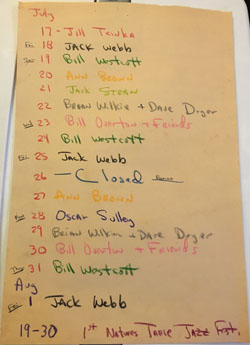 July
17 - Jill
Fri 18 Jack Webb
19 Bill Westcott
20 Ann Brown
21 Jack Stean
22 Brian Wilkie + Dave Dryer
23 Bill Overton + Friends
24 Bill Westcott
Fri 25 Jack Webb
26 - Closed
27 Ann Brown
28 Oscar Sulley
29 Brian Wilkie + Dave Dryer
30 Bill Overton + Friends
31 Bill Westcott
Aug
1 Jack Webb
19-30 1st Natures Table Jazz Fest.